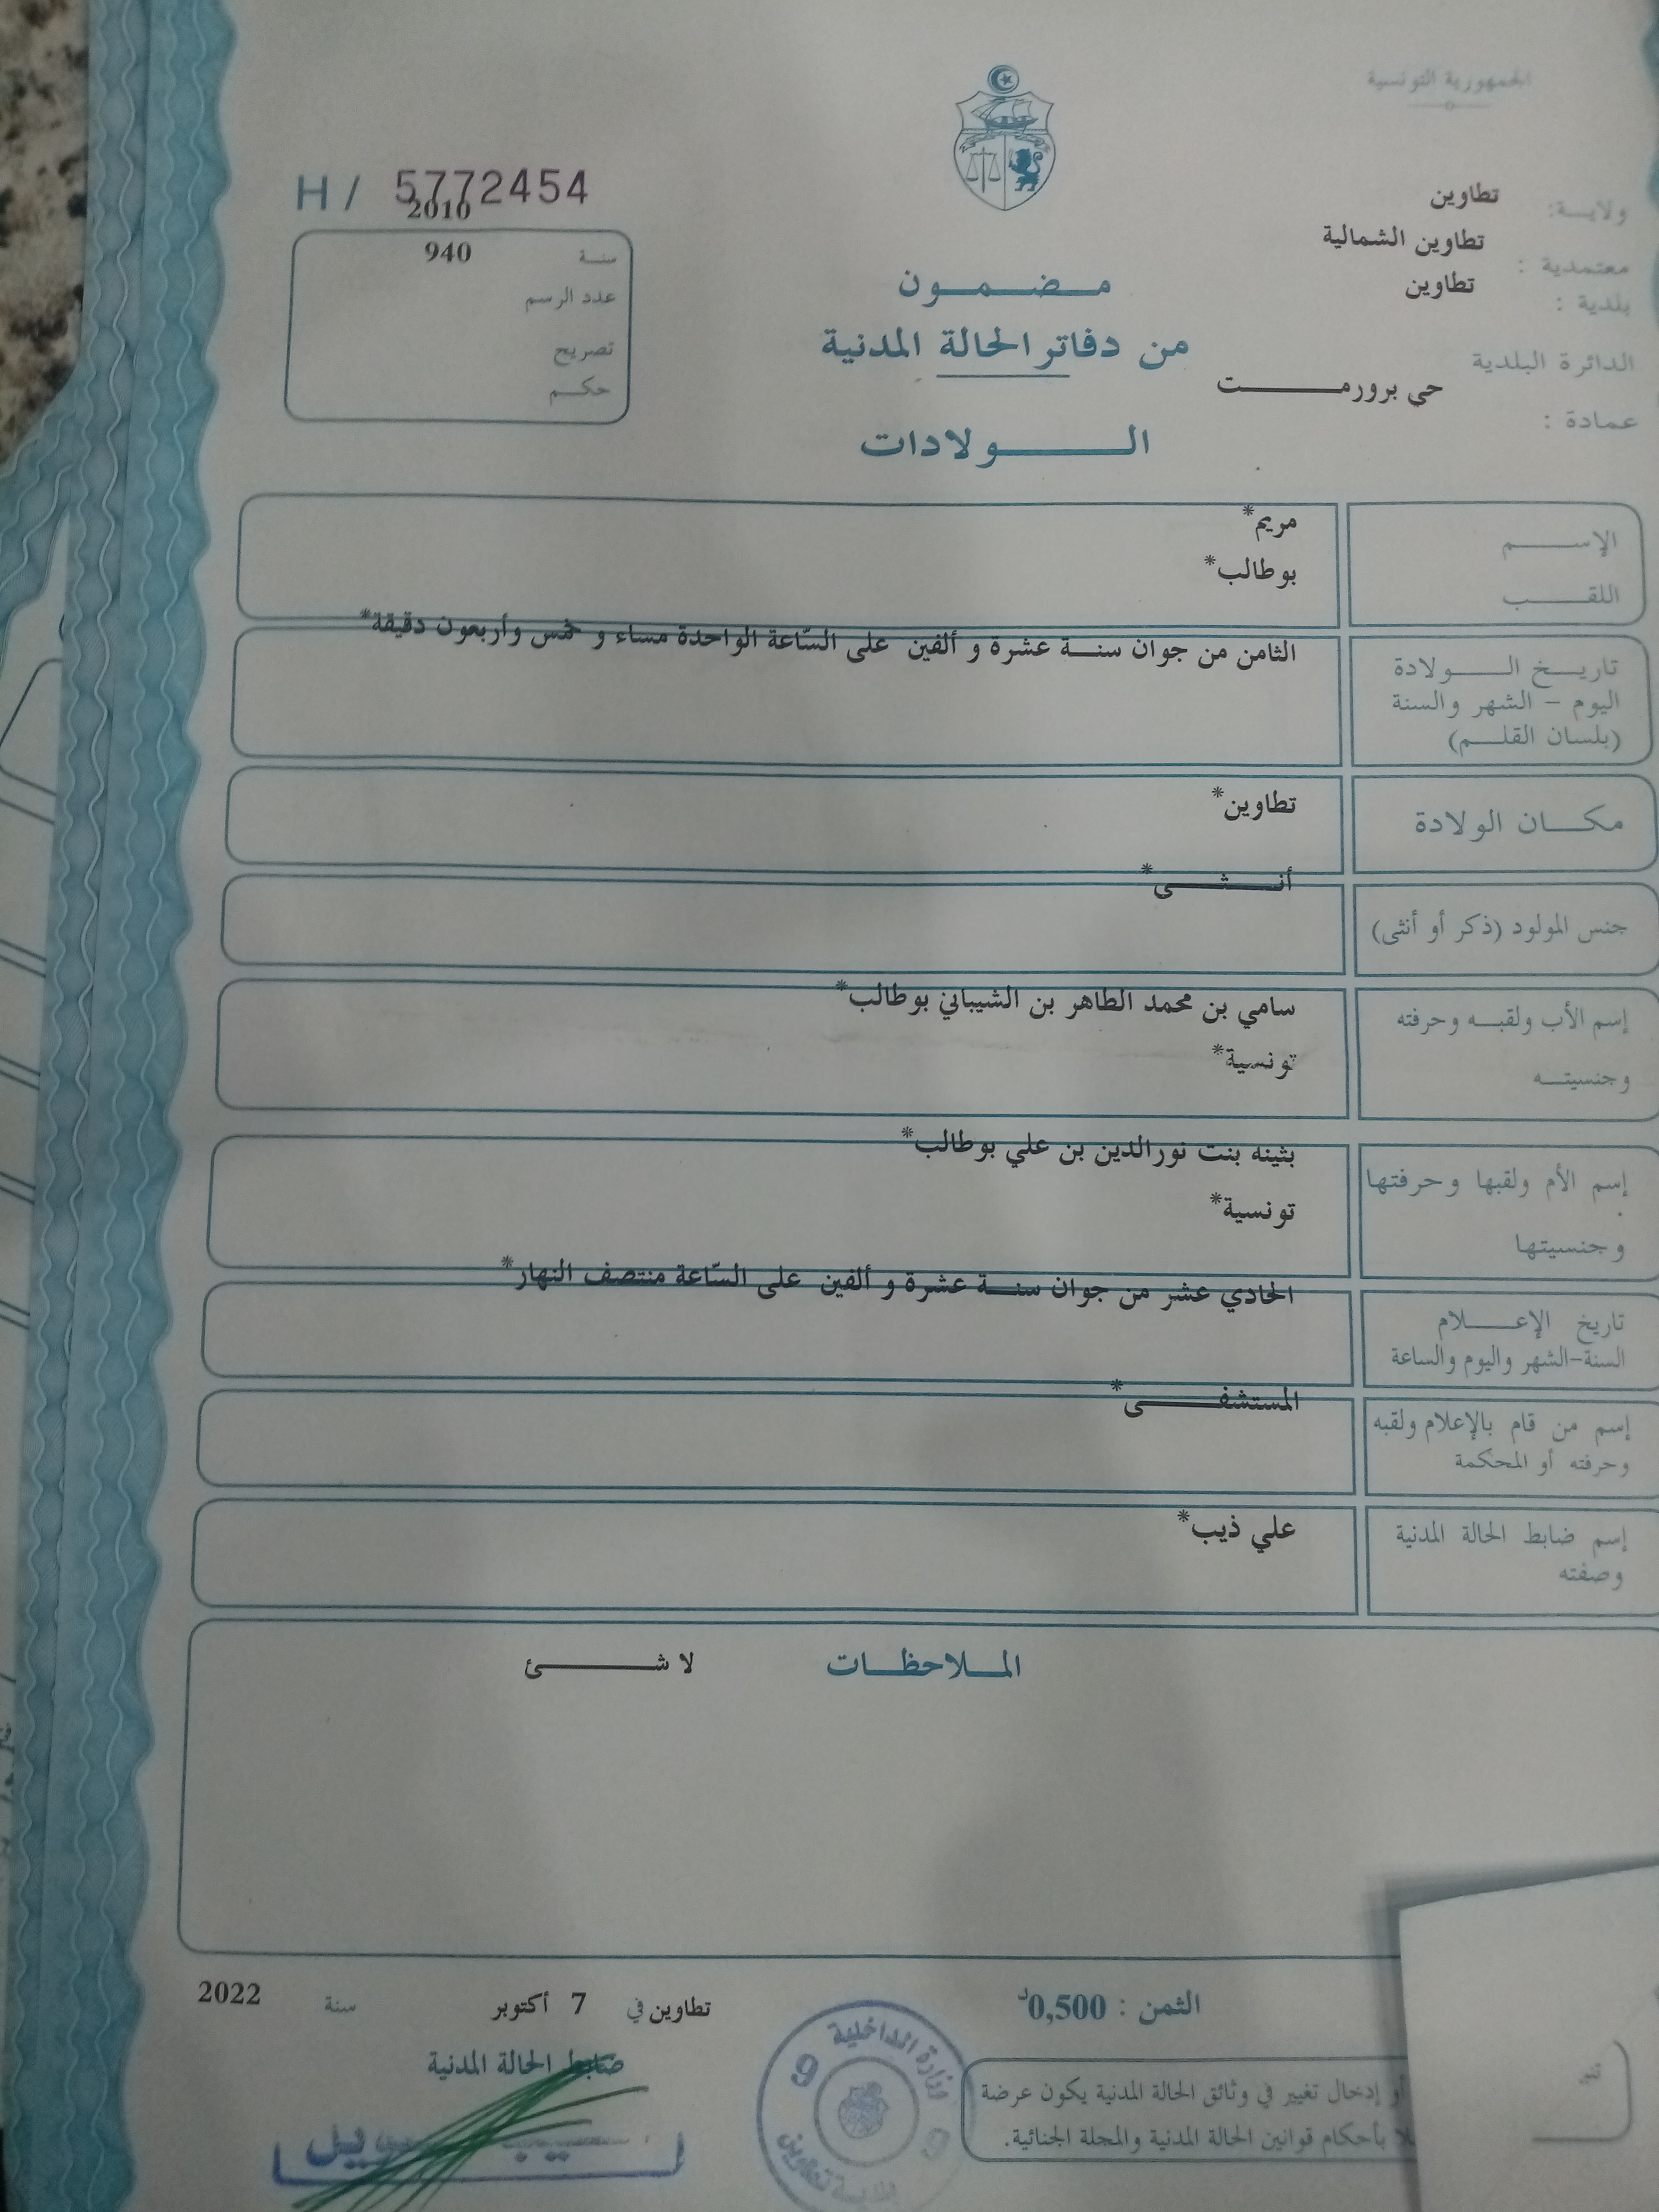 الجمهورية التونسية
H / 5772454
2010
سنة 940
عدد الرسم
تصريح
حكم
ولاية: تطاوين
معتمدية : تطاوين الشمالية
بلدية : تطاوين
الدائرة البلدية
حي برورمت
عمادة :
مضمون
من دفاتر الحالة المدنية
الولادات
الإسم مريم*
اللقب بوطالب*
تاريخ الولادة الثامن من جوان سنة عشرة و ألفين على السّاعة الواحدة مساء و خمس وأربعون دقيقة*
اليوم - الشهر والسنة
(بلسان القلم)
مكان الولادة تطاوين*
أنثى*
جنس المولود (ذكر أو أنثى)
إسم الأب ولقبه وحرفته سامي بن محمد الطاهر بن الشيباني بوطالب*
وجنسيته تونسية*
إسم الأم ولقبها وحرفتها بثينه بنت نورالدين بن علي بوطالب*
وجنسيتها تونسية*
الحادي عشر من جوان سنة عشرة و ألفين على السّاعة منتصف النهار*
تاريخ الإعلام
السنة-الشهر واليوم والساعة
المستشفى*
إسم من قام بالإعلام ولقبه
وحرفته أو المحكمة
إسم ضابط الحالة المدنية علي ذيب*
وصفته
الملاحظات لا شئ
الثمن : 0,500د
تطاوين في 7 أكتوبر سنة 2022
ضابط الحالة المدنية
وزارة الداخلية
9
بلدية تطاوين
أو إدخال تغيير في وثائق الحالة المدنية يكون عرضة
بأحكام قوانين الحالة المدنية والمجلة الجنائية.